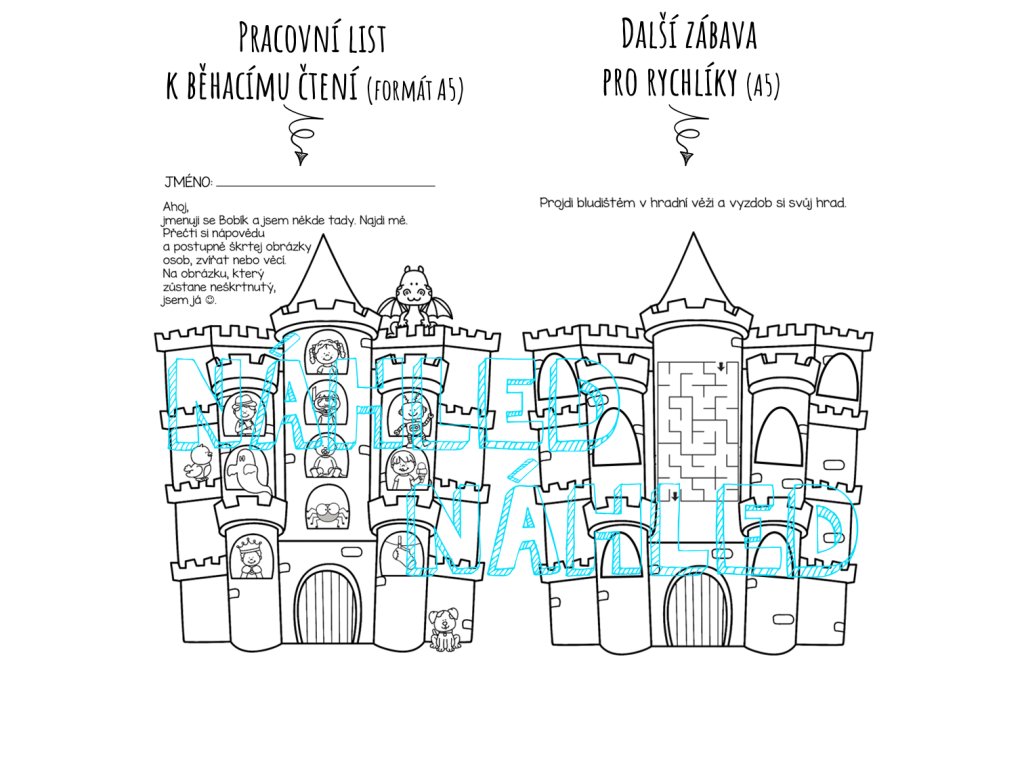 Pracovní list
k běhacímu čtení (formát A5)
Další zábava
pro rychlíky (A5)
JMÉNO:
Ahoj,
jmenuji se Bobík a jsem někde tady. Najdi mě.
Přečti si nápovědu
a postupně škrtej obrázky
osob, zvířat nebo věcí.
Na obrázku, který
zůstane neškrtnutý,
jsem já ☺.
Projdi bludištěm v hradní věži a vyzdob si svůj hrad.
NÁHLED
NÁHLED